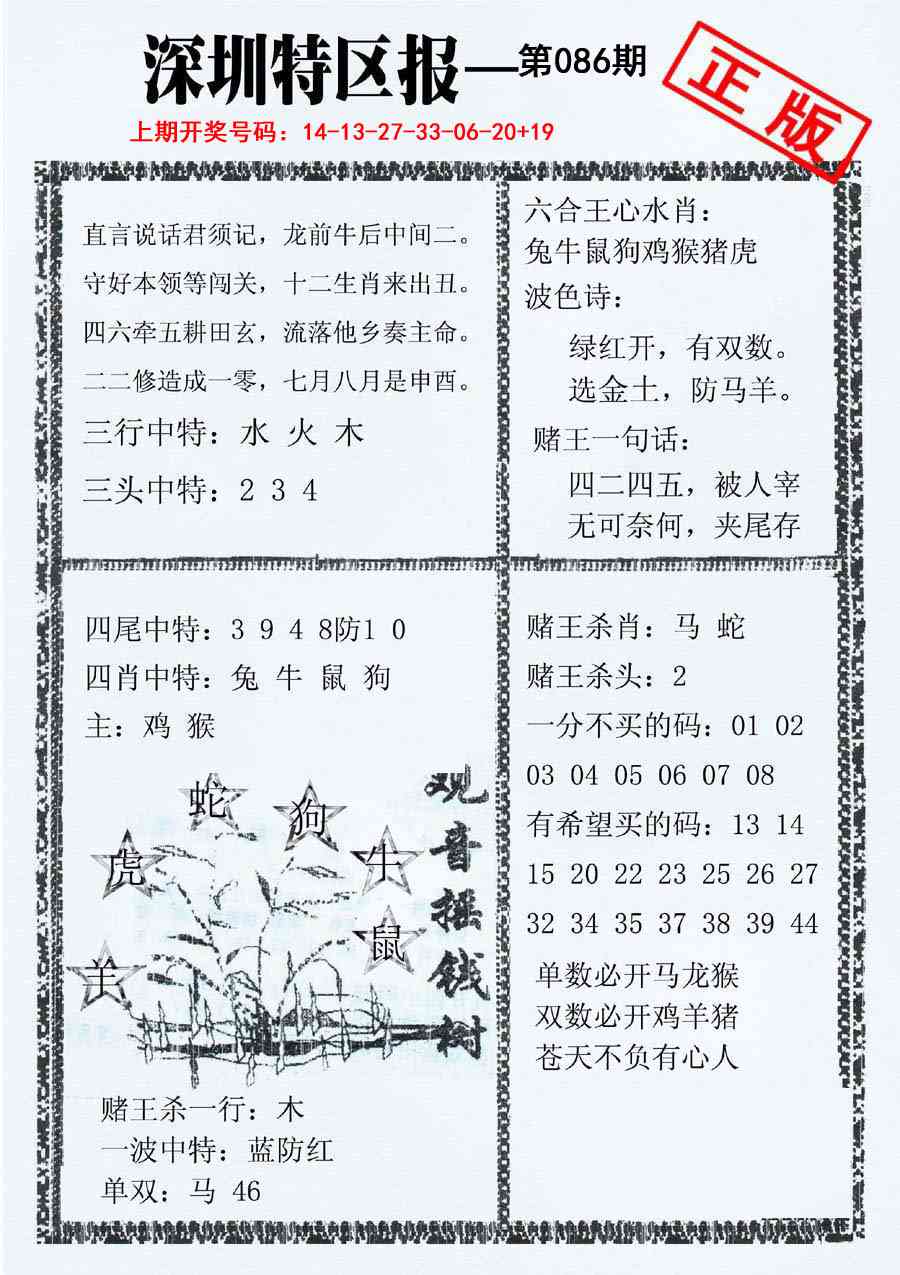 深圳特区报—第086期
正版
上期开奖号码：14-13-27-33-06-20+19
直言说话君须记，龙前牛后中间二。
守好本领等闯关，十二生肖来出丑。
四六牵五耕田玄，流落他乡奏主命。
二二修造成一零，七月八月是申酉。
三行中特：水 火 木
三头中特：2 3 4
六合王心水肖：
兔牛鼠狗鸡猴猪虎
波色诗：
绿红开，有双数。
选金土，防马羊。
赌王一句话：
四二四五，被人宰
无可奈何，夹尾存
四尾中特：3 9 4 8防1 0
四肖中特：兔 牛 鼠 狗
主：鸡 猴
蛇
狗
虎
牛
鼠
羊
观音摇钱树
赌王杀一行：木
一波中特：蓝防红
单双：马 46
赌王杀肖：马 蛇
赌王杀头：2
一分不买的码：01 02
03 04 05 06 07 08
有希望买的码：13 14
15 20 22 23 25 26 27
32 34 35 37 38 39 44
单数必开马龙猴
双数必开鸡羊猪
苍天不负有心人